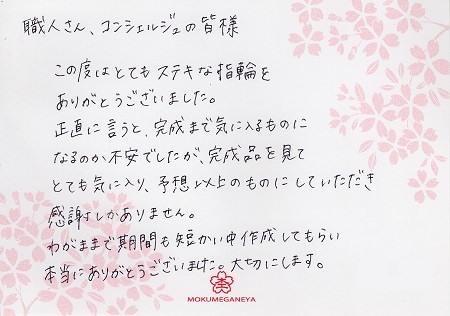 職人さん、コンシェルジュの皆様
この度はとてもステキな指輪を
ありがとうございました。
正直に言うと、完成まで気に入るものに
なるのか不安でしたが、完成品を見て
とても気に入り、予想以上のものにしていただき
感謝しかありません。
わがままで期間も短かい中作成してもらい
本当にありがとうございました。大切にします。
MOKUMEGANEYA